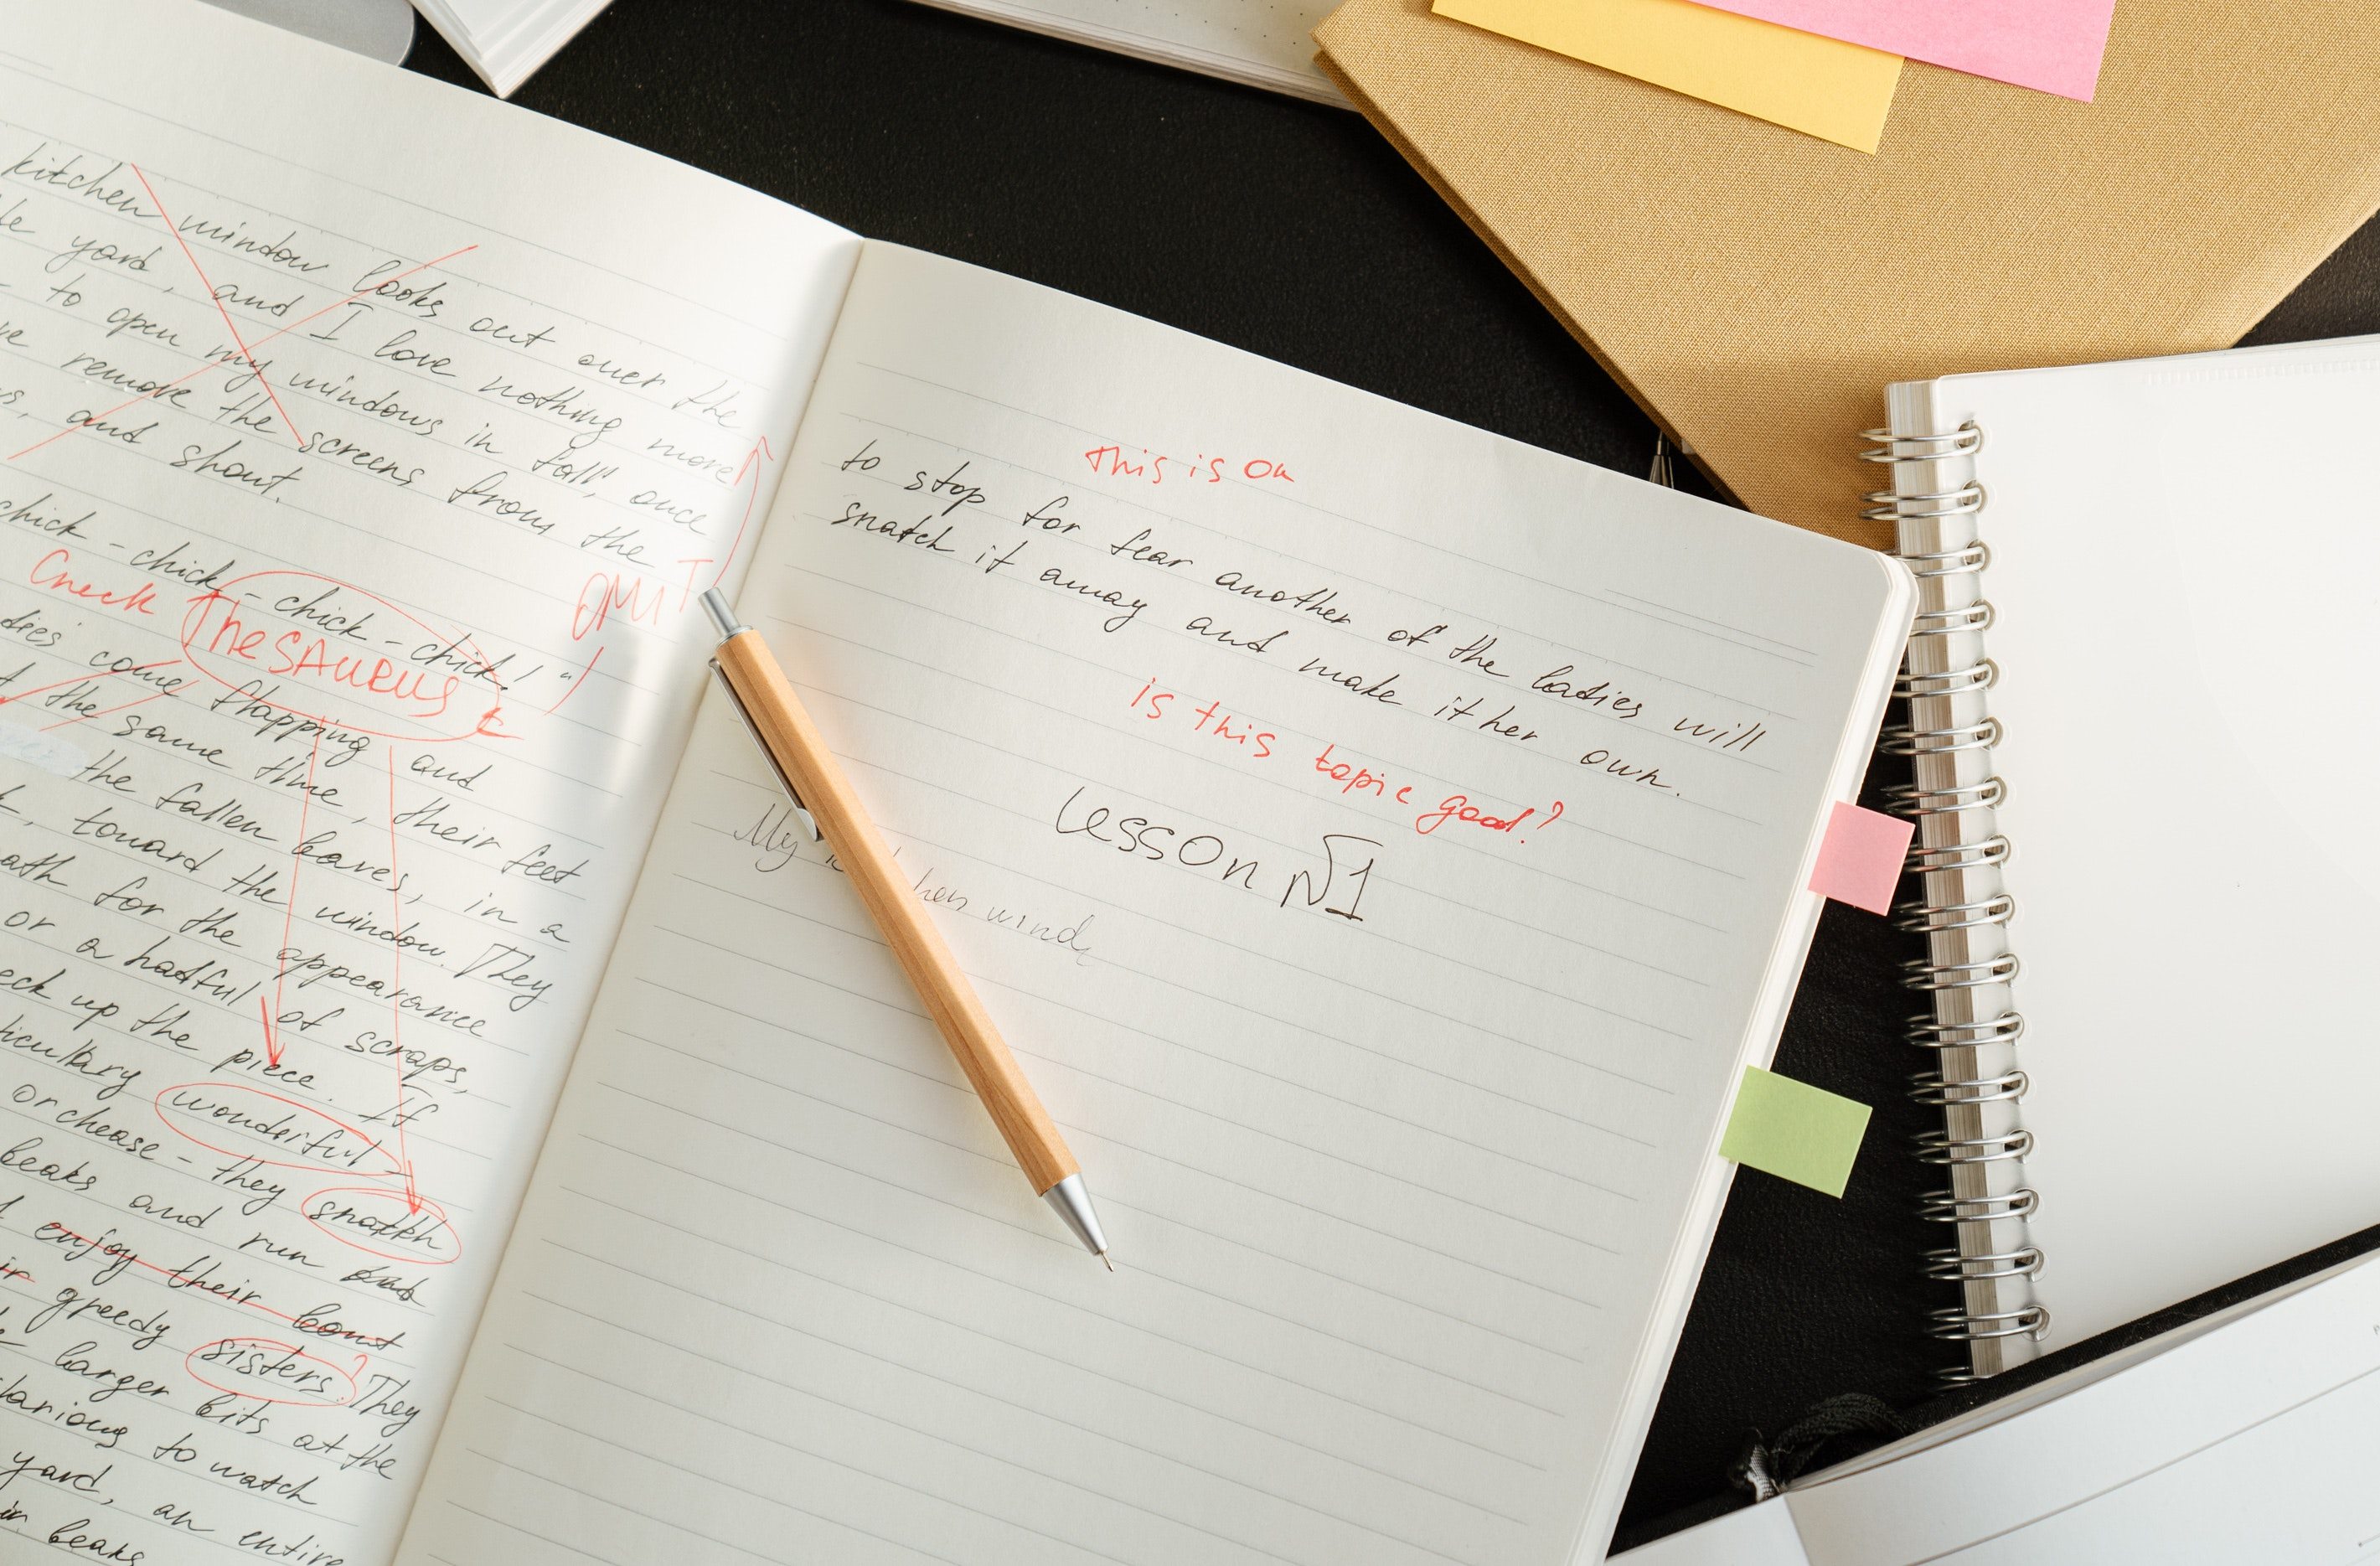 kitchen window looks out over the
yard, and I love nothing more
to open my windows in fall, once
remove the screens from the
and shout.
chick - chick - chick - chick! "
OMIT
Check Thesaurus
come flapping and
the same time, their feet
the fallen leaves, in a
toward the window. They
for the appearance
or a hatful of scraps,
up the piece. If
wonderful -
orchease - they snatch
beaks and run
enjoy their bout
greedy sisters? They
larger bits at the
to watch
yard, an entire
beaks
This is Ok
to stop for fear another of the ladies will
snatch it away and make it her own.
is this topic good?
Lesson N1
My hen wind